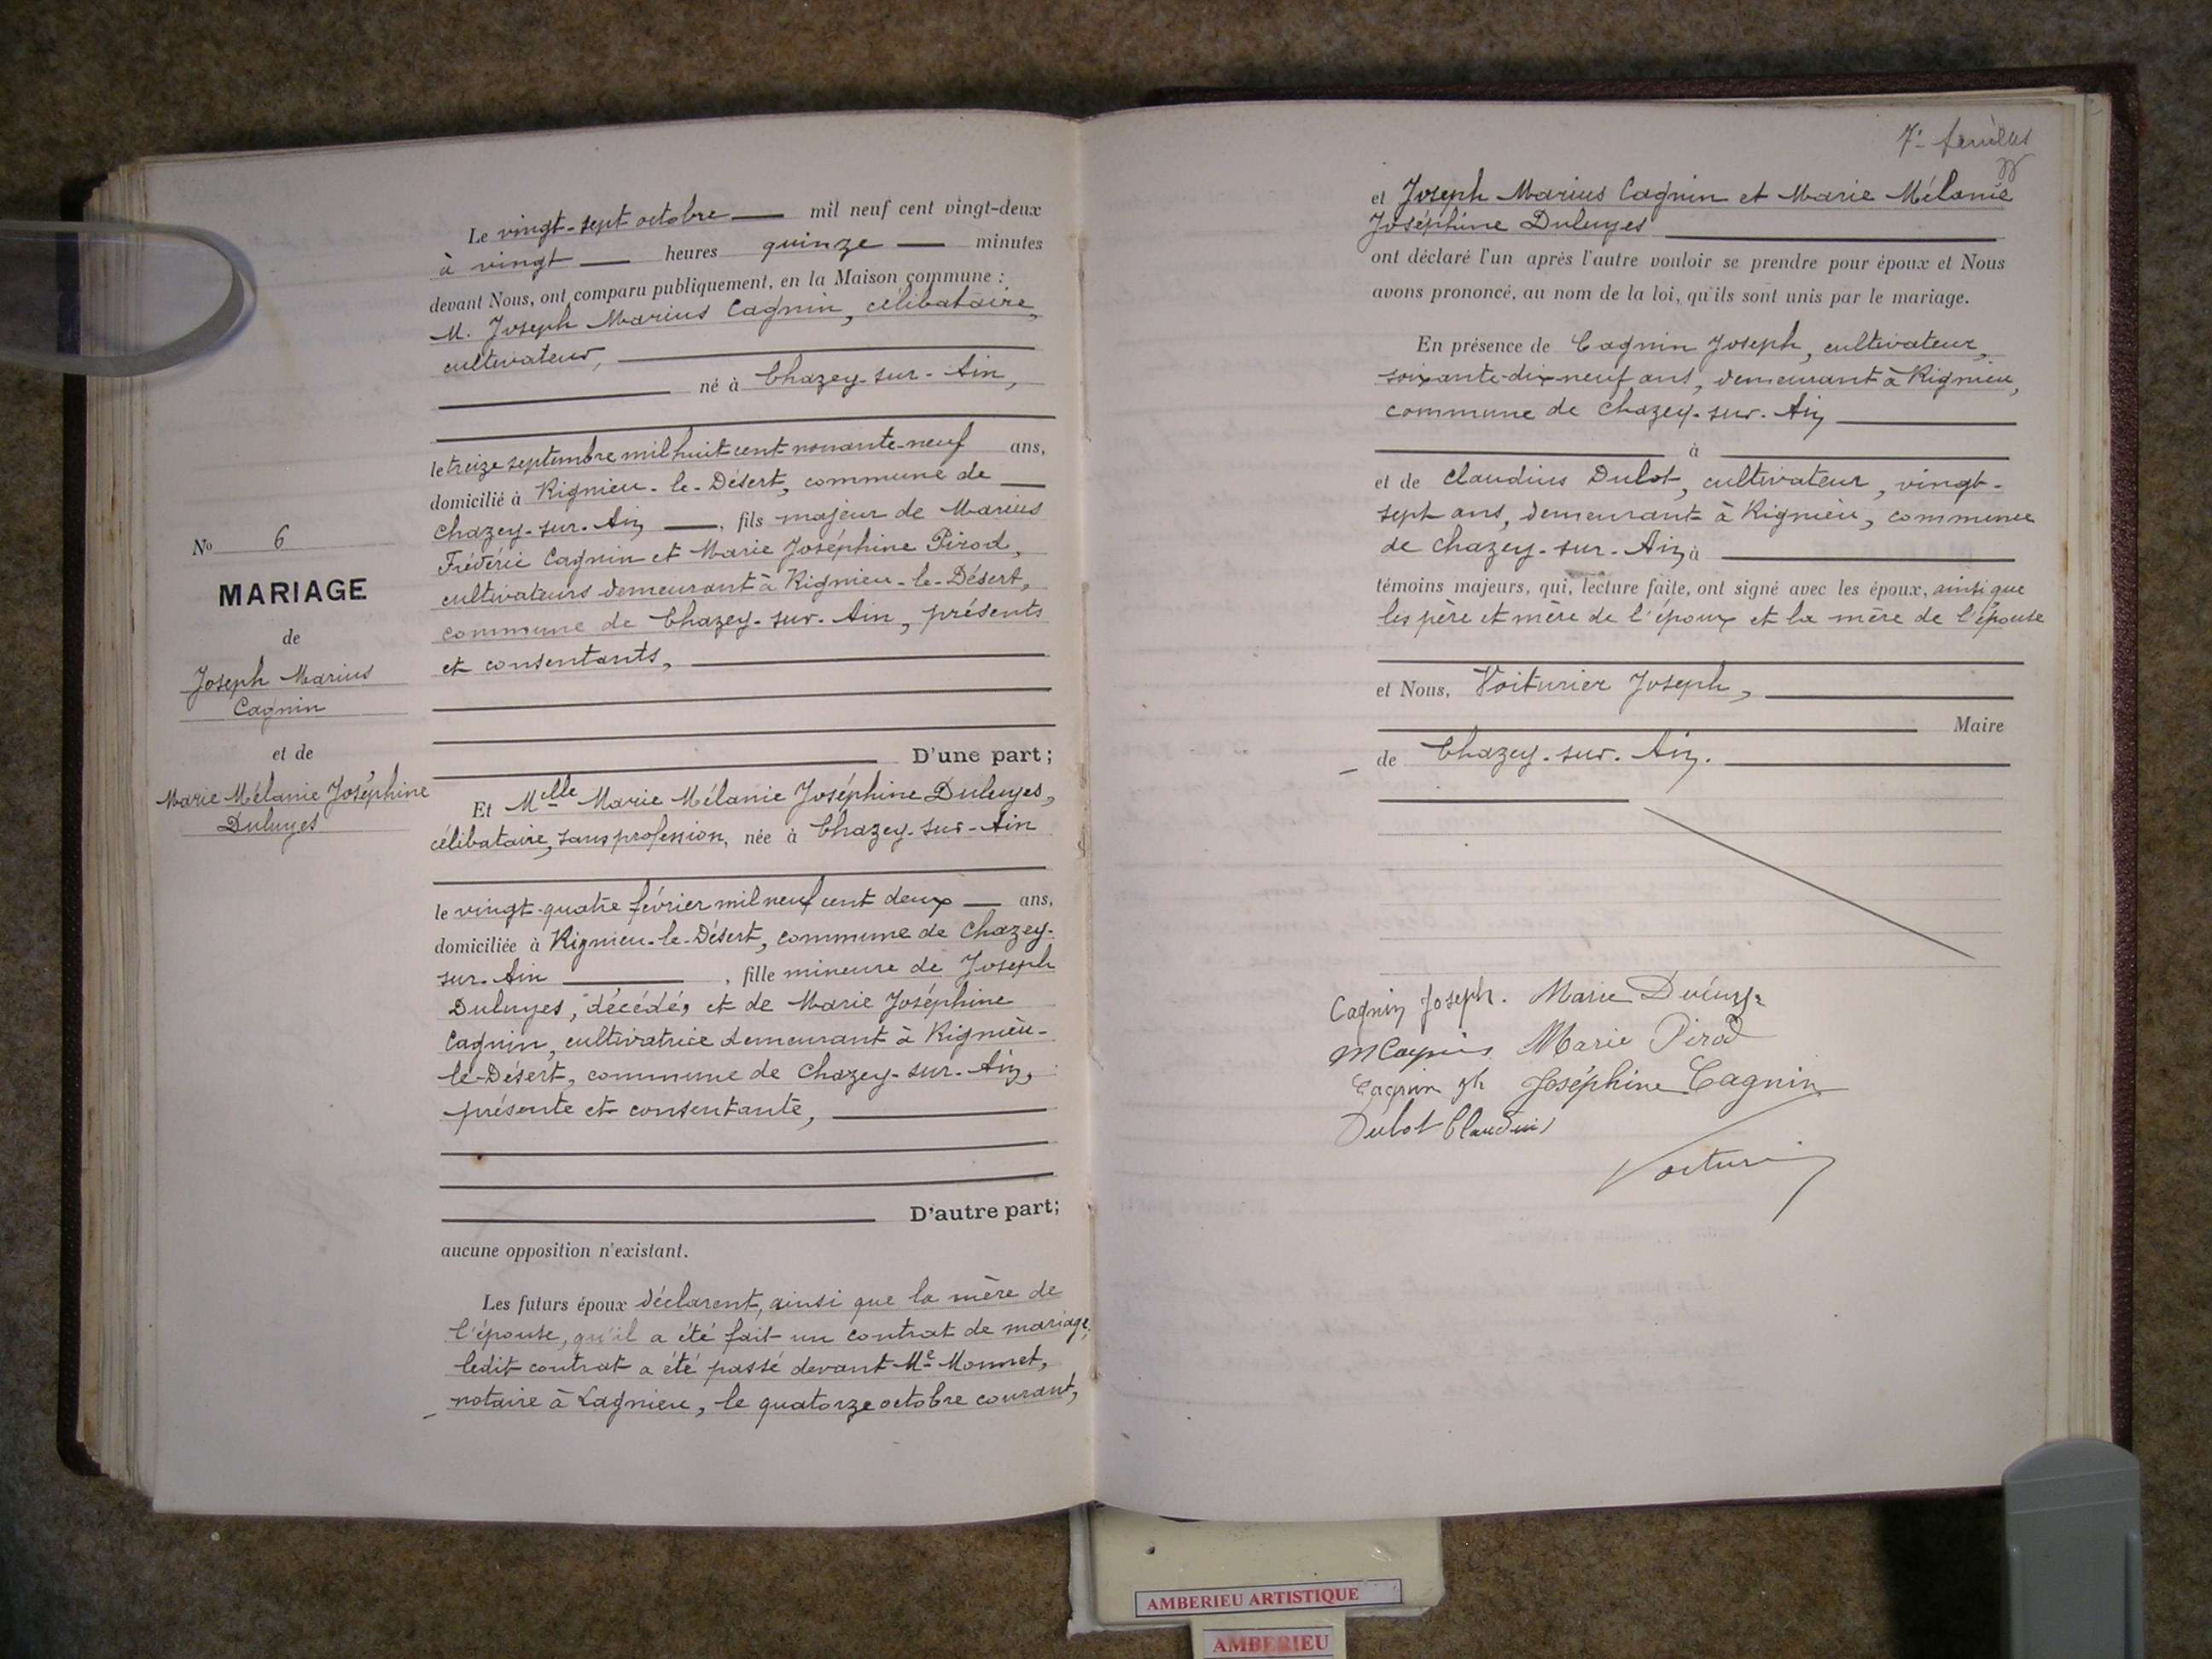 Le vingt-sept octobre mil neuf cent vingt-deux
à vingt heures quinze minutes
devant Nous, ont comparu publiquement, en la Maison commune :
M. Joseph Marius Cagnin, célibataire,
cultivateur,
né à Chazey-sur-Ain,
le treize septembre mil huit cent nonante-neuf ans,
domicilié à Rignieu-le-Désert, commune de
Chazey-sur-Ain, fils majeur de Marius
Frédéric Cagnin et Marie Joséphine Pirod,
cultivateurs demeurant à Rignieu-le-Désert,
commune de Chazey-sur-Ain, présents
et consentants,
D'une part;
No 6
MARIAGE
de
Joseph Marius
Cagnin
et de
Marie Mélanie Joséphine
Duluyes
Et Melle Marie Mélanie Joséphine Duluyes,
célibataire, sans profession, née à Chazey-sur-Ain
le vingt-quatre février mil neuf cent deux ans,
domiciliée à Rignieu-le-Désert, commune de Chazey-
sur-Ain, fille mineure de Joseph
Duluyes, décédé, et de Marie Joséphine
Cagnin, cultivatrice demeurant à Rignieu-
le-Désert, commune de Chazey-sur-Ain,
présente et consentante,
D'autre part;
aucune opposition n'existant.
Les futurs époux déclarent, ainsi que la mère de
l'épouse, qu'il a été fait un contrat de mariage;
ledit contrat a été passé devant Me Monnet,
notaire à Lagnieu, le quatorze octobre courant,
7e
et Joseph Marius Cagnin et Marie Mélanie
Joséphine Duluyes
ont déclaré l'un après l'autre vouloir se prendre pour époux et Nous
avons prononcé, au nom de la loi, qu'ils sont unis par le mariage.
En présence de Cagnin Joseph, cultivateur,
soixante-dix-neuf ans, demeurant à Rignieu,
commune de Chazey-sur-Ain
à
et de Claudius Dulot, cultivateur, vingt-
sept ans, demeurant à Rignieu, commune
de Chazey-sur-Ain, à
témoins majeurs, qui, lecture faite, ont signé avec les époux, ainsi que
les père et mère de l'époux et la mère de l'épouse
et Nous, Voiturier Joseph,
Maire
de Chazey-sur-Ain.
Cagnin Joseph. Marie
Marie Pirod
Cagnin Jh Joséphine Cagnin
Dulot Claudius
AMBERIEU ARTISTIQUE
AMBERIEU